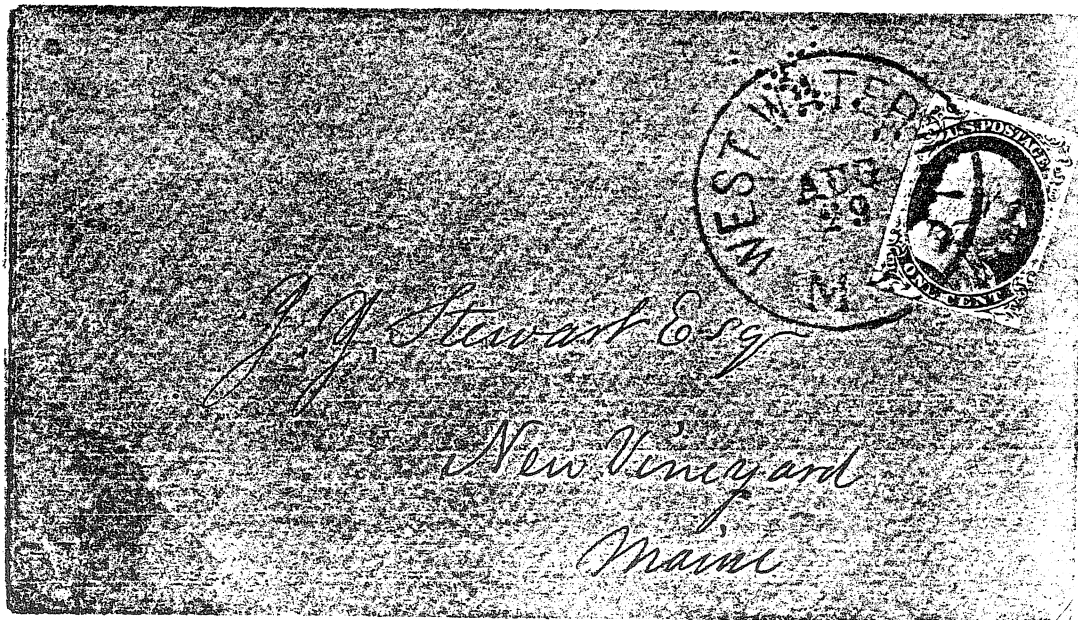 WEST WATER
AUG
29
M
U.S. POSTAGE
ONE CENT
J. G. Stewart Esq
New Vineyard
Maine